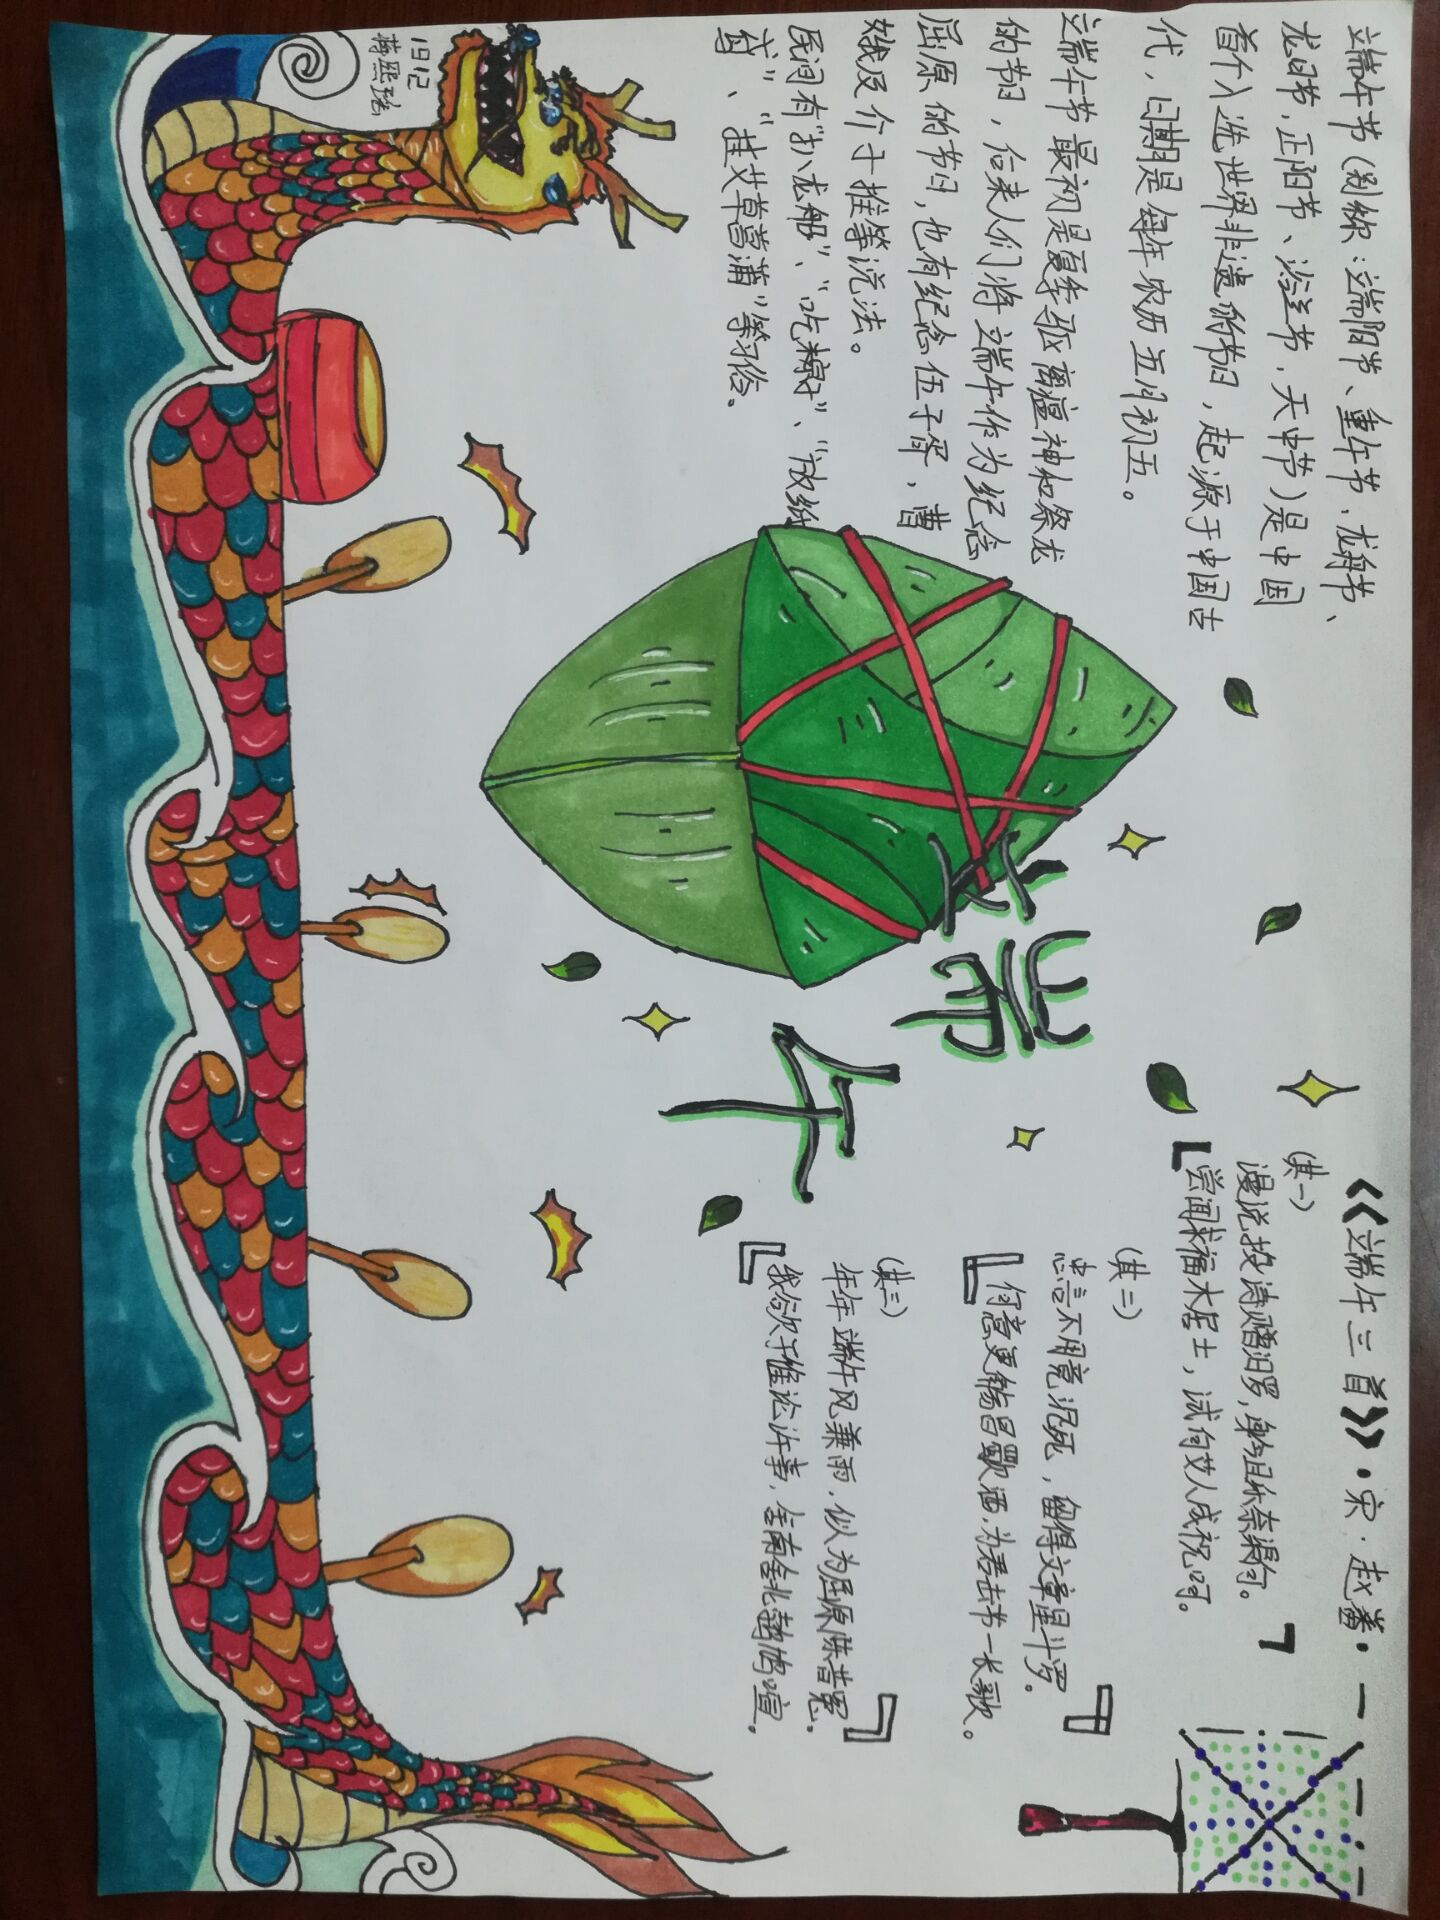 端午节(别称:端阳节、重午节、龙舟节、
龙日节,正阳节、浴兰节,天中节)是中国
首个入选世界非遗的节日,起源于中国古
代,日期是每年农历五月初五。
端午节最初是夏季驱离瘟神和祭龙
的节日,后来人们将端午作为纪念
屈原的节日,也有纪念伍子胥,曹
娥及介子推等说法。
民间有“扒龙船”、“吃粽子”、“放纸
鸢”、“挂艾草菖蒲”等习俗。
端午
《端午三首》·宋·赵蕃·
(其一)
漫说投诗赠汨罗,身今且乐奈渠何。
尝闻求福木居士,试向艾人成祝呵。
(其二)
忠言不用竟沉死,留得文章星斗罗。
何意更觞昌歜酒,为君击节一长歌。
(其三)
年年端午风兼雨,似为屈原陈昔冤。
我欲于谁论许事,舍南舍北鹁鸠喧。
1912
蒋熙